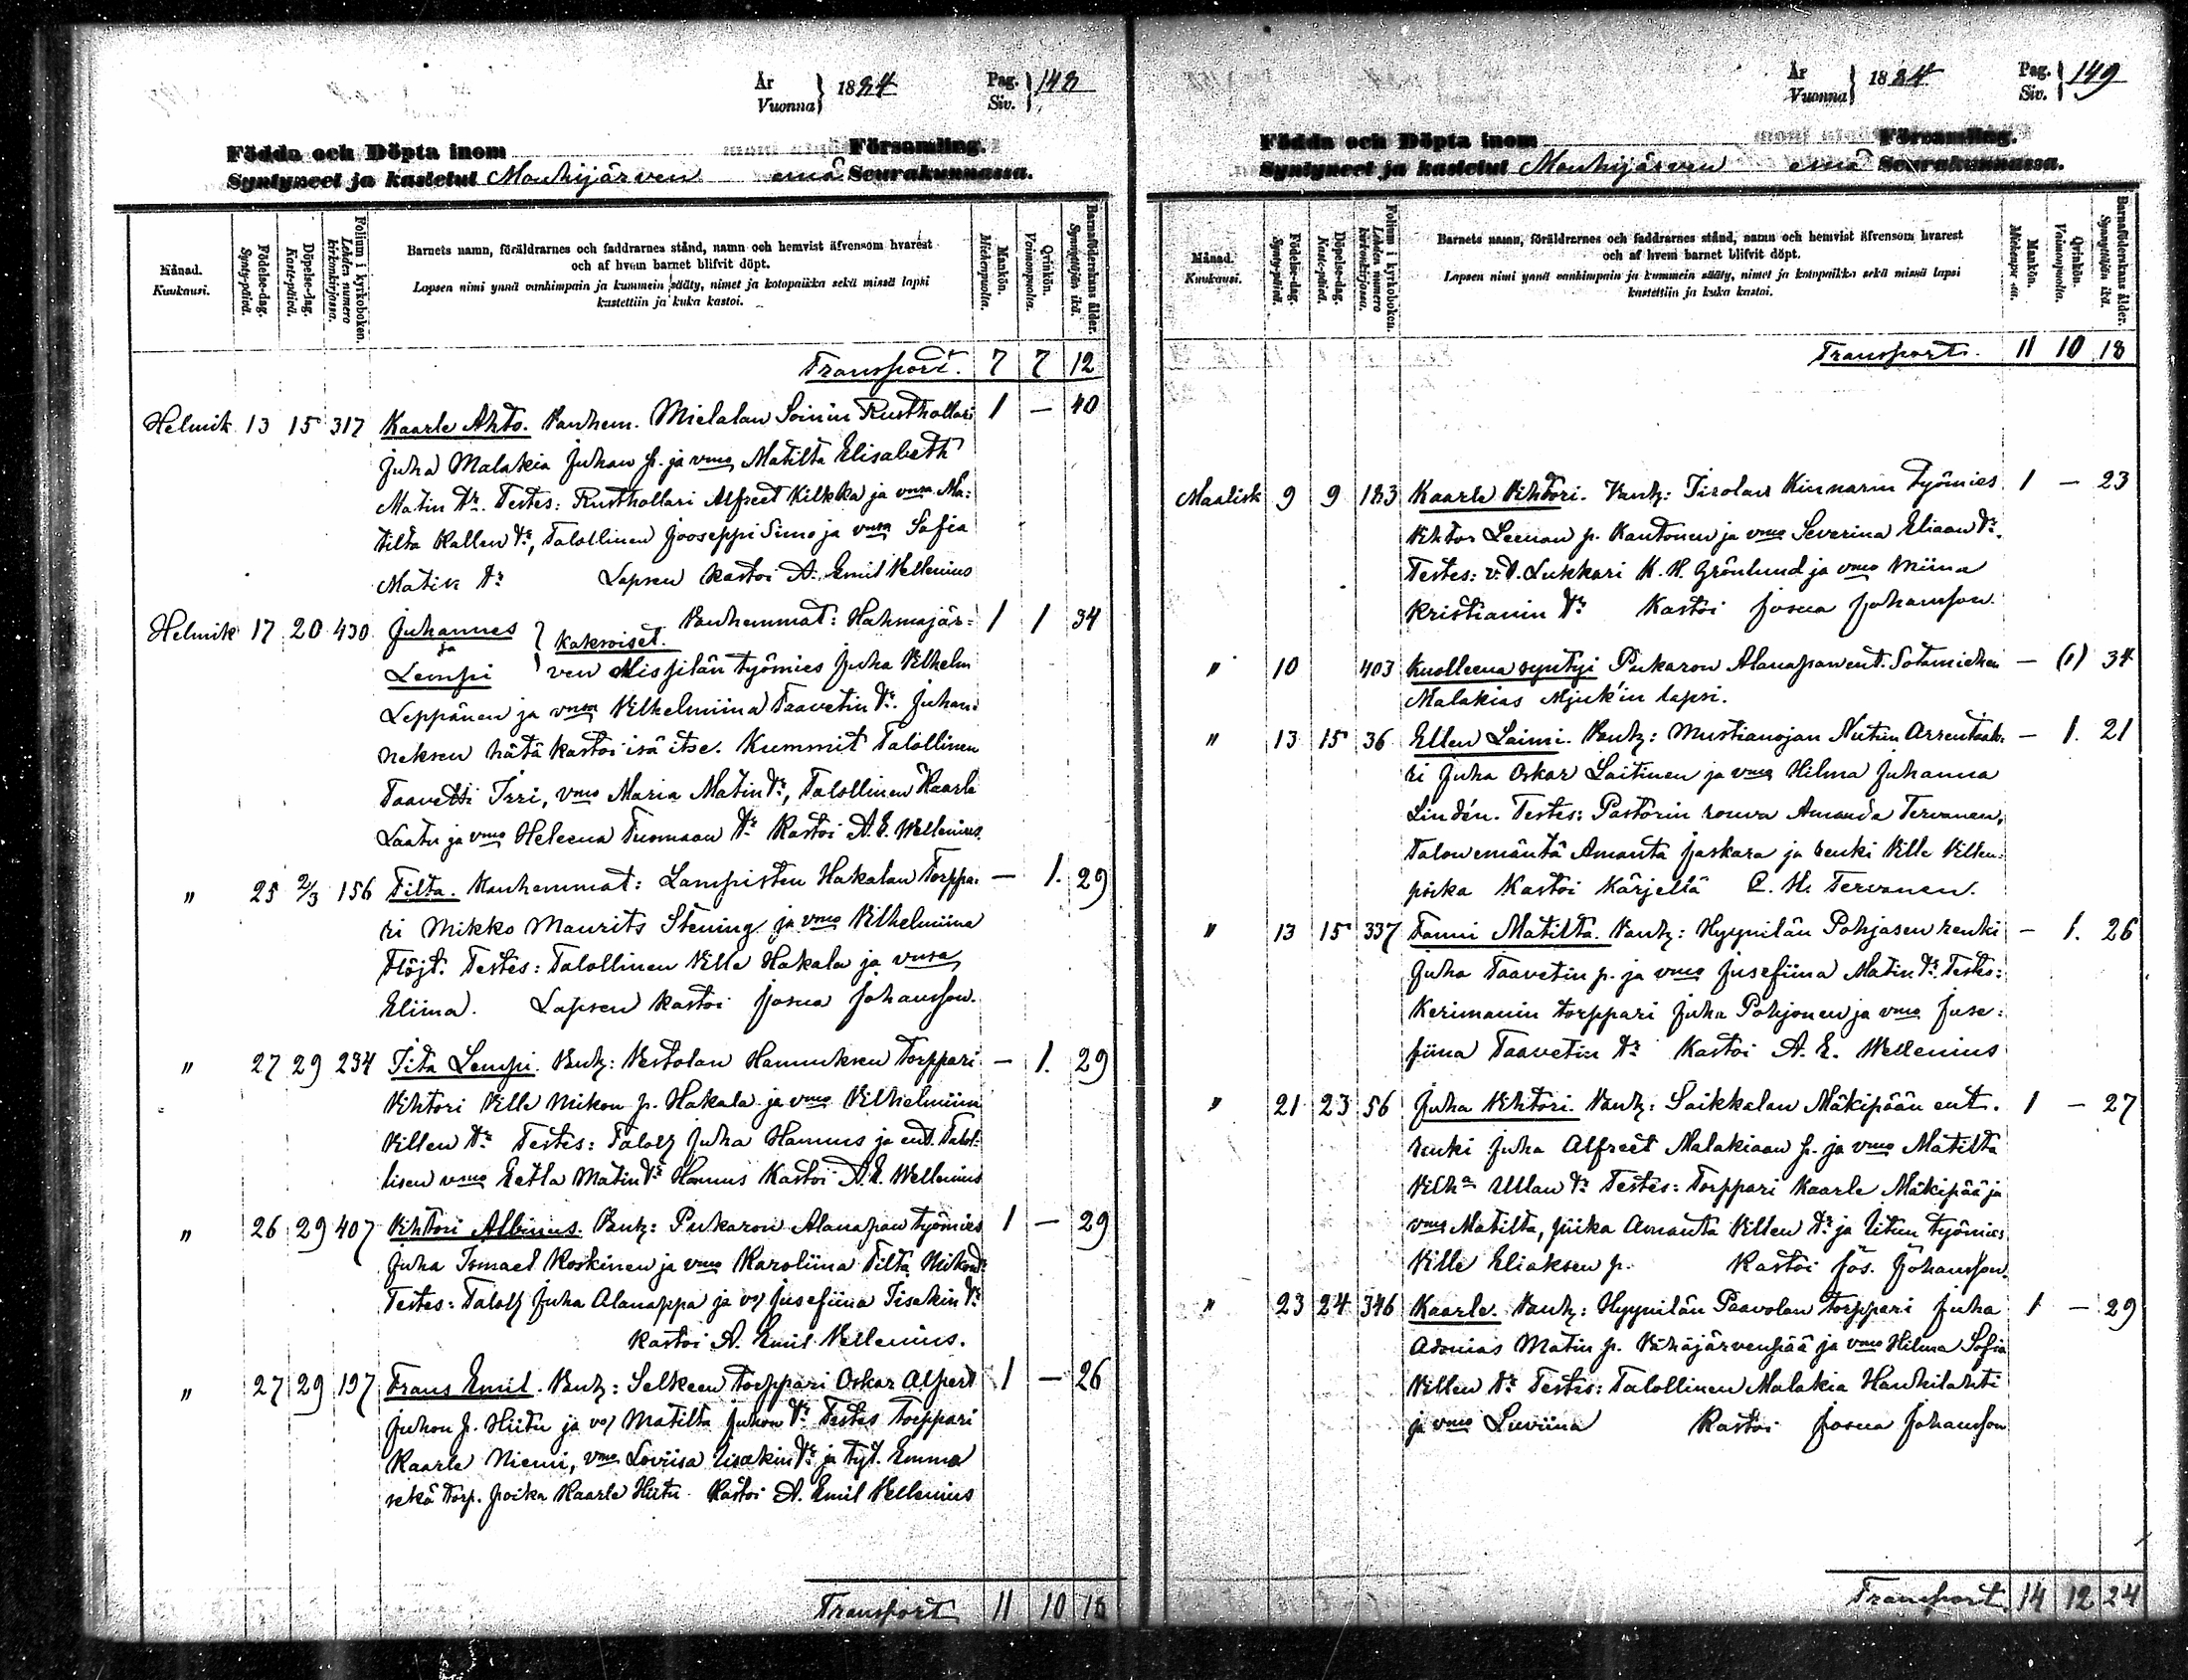 År
Vuonna } 1884
Pag.
Siv. } 148
Födda och Döpta inom Församling.
Syntyneet ja kastetut Mouhijärven emä Seurakunnassa.
Månad. Kuukausi.
Födelse-dag. Synty-päivä.
Döpelse-dag. Kaste-päivä.
Folium i kyrkoboken. Lehden numero kirkonkirjassa.
Barnets namn, föräldrarnes och faddrarnes stånd, namn och hemvist äfvensom hvarest
och af hvem barnet blifvit döpt.
Lapsen nimi ynnä vanhimpain ja kummein sääty, nimet ja kotopaikka sekä missä lapsi
kastettiin ja kuka kastoi.
Mankön. Miehenpuolta.
Qvinkön. Vaimonpuolta.
Barnaföderskans ålder. Synnyttäjän ikä.
Transport. 7 7 12
Helmik. 13 15 317 Kaarle Ahto. Vanhem. Mielalan Soinin Rusthollari 1 — 40
Juha Malakia Juhan p. ja vmo Matilta Elisabeth
Matin tr. Testes: Rusthollari Alfred Kilkka ja vmsa Ma-
tilta Kallen tr, Talollinen Jooseppi Simo ja vmsa Sofia
Matin tr Lapsen kastoi A. Emil Vellenius
Helmik 17 20 430 Juhannes } Vanhemmat: Hahmajär- 1 1 34
ja kaksoiset.
Lempi } ven Missilän työmies Juha Vilhelm
Leppänen ja vmsa Vilhelmiina Taavetin tr. Juhan-
neksen hätäkastoi isä itse. Kummit Talollinen
Taavetti Irri, vmo Maria Matin tr, Talollinen Kaarle
Laatu ja vmo Heleena Tuomaan tr Kastoi A. E. Wellenius
" 25 2/3 156 Tilta. Vanhemmat: Lampisten Hakalan Torppa- — 1. 29
ri Mikko Maurits Stening ja vmo Vilhelmiina
Flöjt. Testes: Talollinen Ville Hakala ja vmsa
Eliina. Lapsen kastoi Josua Johansson.
" 27 29 234 Iita Lempi. Vanh: Vestolan Hannuksen Torppari — 1. 29
Vihtori Ville Mikon p. Hakala ja vmo Vilhelmiina
Villen tr Testes: Taloll Juha Hannus ja ent. Talol-
lisen vmo Eetla Matin tr Hannus Kastoi A. E. Wellenius
" 26 29 407 Vihtori Albinus. Vanh: Pukaron Alanapan työmies 1 — 29
Juha Ismael Koskinen ja vmo Karoliina Tilta Mikon tr
Testes: Taloll Juha Alanappa ja vo Jusefiina Iisakin tr
Kastoi A. Emil Vellenius.
" 27 29 197 Frans Emil. Vanh: Selkeen torppari Oskar Alfert 1 — 26
Juhon p. Hiitu ja vo Matilta Juhon tr Testes Torppari
Kaarle Niemi, vmo Loviisa Iisakin tr ja tyt. Emma
sekä torp. poika Kaarle Hiitu. Kastoi A. Emil Vellenius
Transport 11 10 18
År
Vuonna } 1884
Pag.
Siv. } 149
Födda och Döpta inom Församling.
Syntyneet ja kastetut Mouhijärven emä Seurakunnassa.
Månad. Kuukausi.
Födelse-dag. Synty-päivä.
Döpelse-dag. Kaste-päivä.
Folium i kyrkoboken. Lehden numero kirkonkirjassa.
Barnets namn, föräldrarnes och faddrarnes stånd, namn och hemvist äfvensom hvarest
och af hvem barnet blifvit döpt.
Lapsen nimi ynnä vanhimpain ja kummein sääty, nimet ja kotopaikka sekä missä lapsi
kastettiin ja kuka kastoi.
Mankön. Miehenpuolta.
Qvinkön. Vaimonpuolta.
Barnaföderskans ålder. Synnyttäjän ikä.
Transport. 11 10 18
Maalisk 9 9 183 Kaarle Vihtori. Vanh: Tirolan Kinnarin Työmies 1 — 23
Vihtor Leenan p. Kantonen ja vmo Severina Eliaan tr.
Testes: v.t. Lukkari K. H. Grönlund ja vmo Miina
Kristianin tr Kastoi Josua Johansson.
" 10 403 Kuolleena syntyi Pukaron Alanapan ent. Sotamiehen — (1) 34
Malakias Mjuk'in lapsi.
" 13 15 36 Ellen Laimi. Vanh: Mustianojan Nutun Arrentaat- — 1. 21
ri Juha Oskar Laitinen ja vmo Hilma Juhanna
Lindén. Testes: Pastorin rouva Amanda Tervanen,
Talon emäntä Amanta Jaskara ja renki Ville Villen-
poika Kastoi Kärjeltä C. H. Tervonen.
" 13 15 337 Fanni Matilta. Vanh: Hyynilän Pohjasen renki — 1. 26
Juha Taavetin p. ja vmo Jusefiina Matin tr. Testes:
Kerimanin torppari Juha Pohjonen ja vmo Juse-
fiina Taavetin tr Kastoi A. E. Wellenius
" 21 23 56 Juha Vihtori. Vanh: Saikkalan Mäkipään ent. 1 — 27
renki Juha Alfreet Malakiaan p. ja vmo Matilta
Vilha Ullan tr Testes: Torppari Kaarle Mäkipää ja
vmo Matilta, piika Amanta Villen tr ja Uitun työmies
Ville Eliaksen p. Kastoi Jos. Johansson.
" 23 24 346 Kaarle. Vanh: Hyynilän Paavolan torppari Juha 1 — 29
Adonias Matin p. Vähäjärvenpää ja vmo Hilma Sofia
Villen tr Testes: Talollinen Malakia Hauhilahti
ja vmo Luviina Kastoi Josua Johansson
Transport. 14 12 24